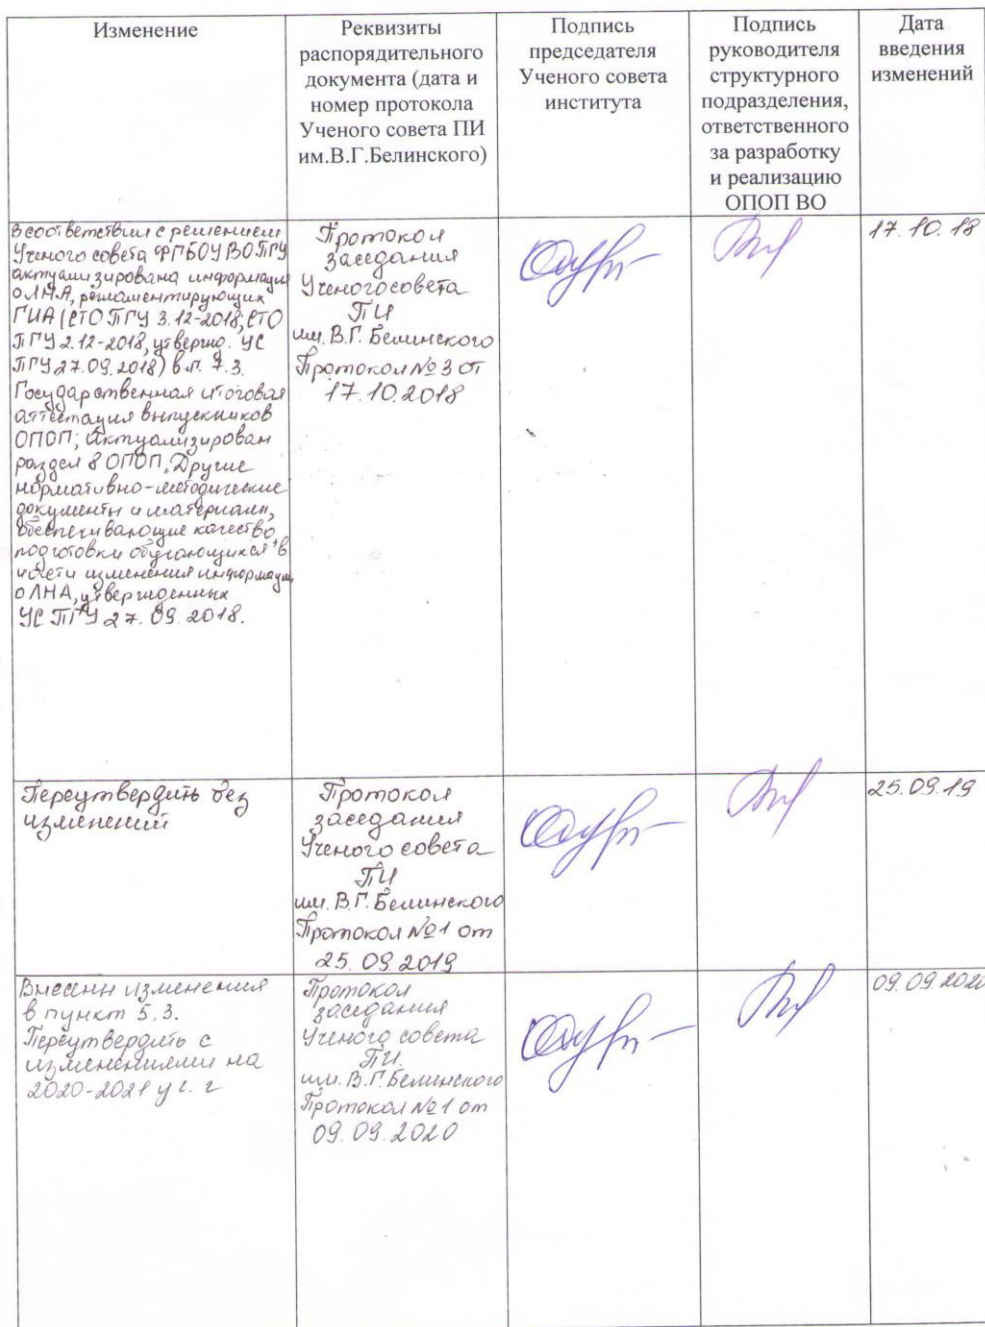 Изменение
Реквизиты
распорядительного
документа (дата и
номер протокола
Ученого совета ПИ
им.В.Г.Белинского)
Подпись
председателя
Ученого совета
института
Подпись
руководителя
структурного
подразделения,
ответственного
за разработку
и реализацию
ОПОП ВО
Дата
введения
изменений
В соответствии с решением
Ученого совета ФГБОУ ВО ПГУ
актуализирована информация
о ЛНА, регламентирующих
ГИА (СТО ПГУ 3.12-2018, СТО
ПГУ 2.12-2018, утвержд. УС
ПГУ 27.09.2018) в п. 7.3.
Государственная итоговая
аттестация выпускников
ОПОП; Актуализирован
раздел 8 ОПОП „Другие
нормативно-методические
документы и материалы,
обеспечивающие качество
подготовки обучающихся" в
части изменения информации
о ЛНА, утвержденных
УС ПГУ 27.09.2018.
Протокол
заседания
Ученого совета
ПИ
им. В.Г. Белинского
Протокол № 3 от
17.10.2018
17.10.18
Переутвердить без
изменений
Протокол
заседания
Ученого совета
ПИ
им. В.Г. Белинского
Протокол № 1 от
25.09.2019
25.09.19
Внесены изменения
в пункт 5.3.
Переутвердить с
изменениями на
2020-2021 уч. г
Протокол
заседания
Ученого совета
ПИ.
им. В.Г. Белинского
Протокол № 1 от
09.09.2020
09.09.2020